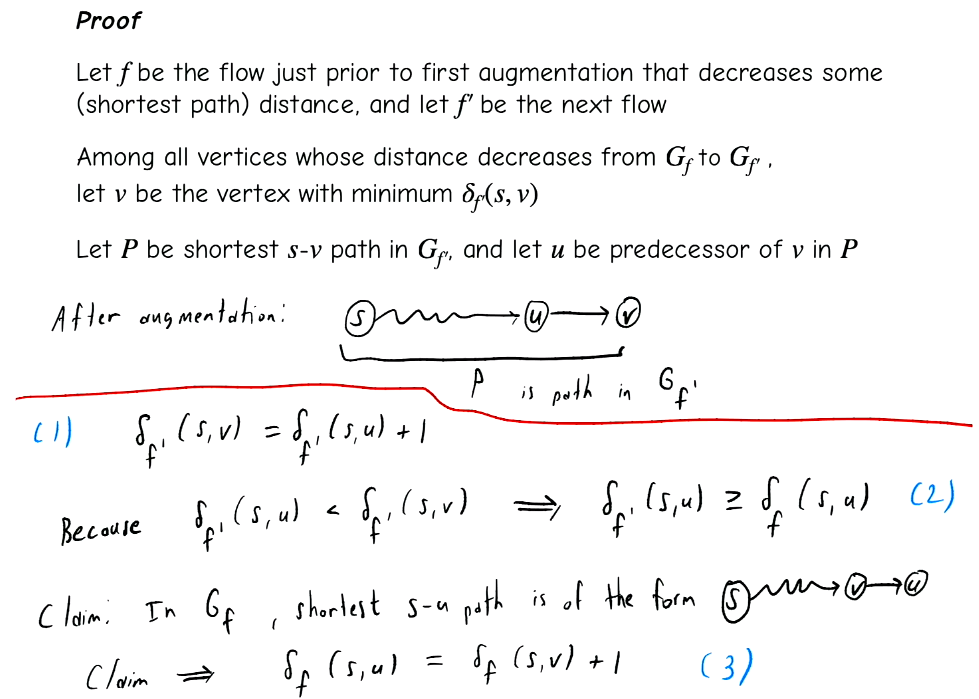 Proof
Let f be the flow just prior to first augmentation that decreases some
(shortest path) distance, and let f′ be the next flow
Among all vertices whose distance decreases from G_f to G_f′ ,
let v be the vertex with minimum δ_f(s, v)
Let P be shortest s-v path in G_f′, and let u be predecessor of v in P
After augmentation: s u v
P is path in G_f'
(1) δ_f' (s,v) = δ_f' (s,u) + 1
Because δ_f' (s,u) < δ_f' (s,v) ⟹ δ_f' (s,u) ≥ δ_f (s,u) (2)
Claim: In G_f , shortest s-u path is of the form s v u
Claim ⇒ δ_f (s,u) = δ_f (s,v) + 1 (3)